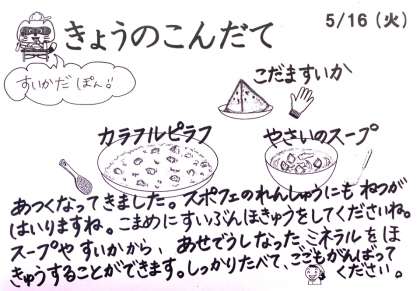 きょうのこんだて
5/16(火)
すいかだ ぽん!
こだますいか
カラフルピラフ
やさいのスープ
あつくなってきました。スポフェのれんしゅうにも ねつが
はいりますね。こまめに すいぶんほきゅうをしてくださいね。
スープや すいかから、あせでうしなった ミネラルを ほ
きゅうすることができます。しっかりたべて、ごごもがんばって
ください。